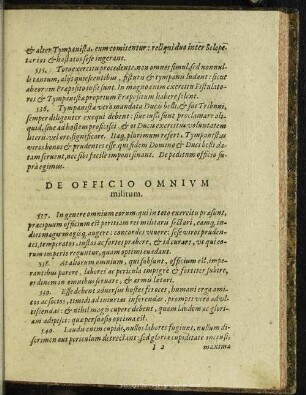 & alter Tympanista, eum comitentur: reliqui duo inter Sclope-
tarios & hastatos sese ingerant.
535. Toto exercitu procedente, non omnes simul, sed non nul-
li tantum, aliis quiescentibus, fistulis & tympanis ludant: sicut
In magno enim exercitu Fistulato-
res & Tympanistæ proprium Præpositum habere solent.
536. Tympanistæ verò mandata Ducis belli, & sui Tribuni,
semper diligenter exequi debent: sive iussi sint proclamare ali-
quid, sive ad hostem proficisci, & ei Ducis exercitus voluntatem
literis vel ore significare. Itaq; plurimum refert, Tympanistas
viros bonos & prudentes esse, qui fidem Domino & Duci belli da-
tam servent, nec sibi facile imponi sinant. De peditum officio su-
prà egimus.
DE OFFICIO OMNIVM
militum.
537. In genere omnium eorum qui in toto exercitu præsunt,
præcipuum officium est peritiam rei militaris sectari, eamq; in
dies magis magisq; augere: concordes vivere: sese viros pruden-
tes, temperatos, iustos ac fortes præbere, & id curare, ut qui eo-
rum imperio reguntur, quàm optimi evadant.
538. At aliorum omnium, qui subsunt, officium est, impe-
rantibus parere, labores ac pericula impigrè & fortiter subire,
ordinem in omnibus servare, & armis lætari.
539. Esse debent adversus hostes feroces, humani erga ami-
cos ac socios, timidi ad iniurias inferendas, promptè verò ad ul-
ciscendas: & nihil magis cupere debent, quàm laudem ac glori-
am adipisci: quæ persuasio optima est.
540. Laudis enim cupidi, nullos labores fugiunt, nullum di-
scrimen aut periculum detrectant: sed gloriæ cupiditate incensi,
I 2 maxima